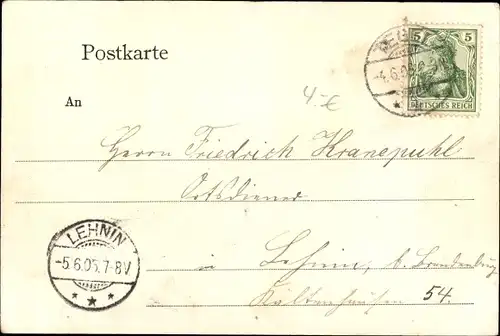 Postkarte
5 5
4.6.05
DEUTSCHES REICH
An
4.-€
Herrn Friedrich Kranepuhl
Ortsdiener
LEHNIN
-5.6.05.7-8V
in Lehnin, b. Brandenburg
Kaltenhausen 54.